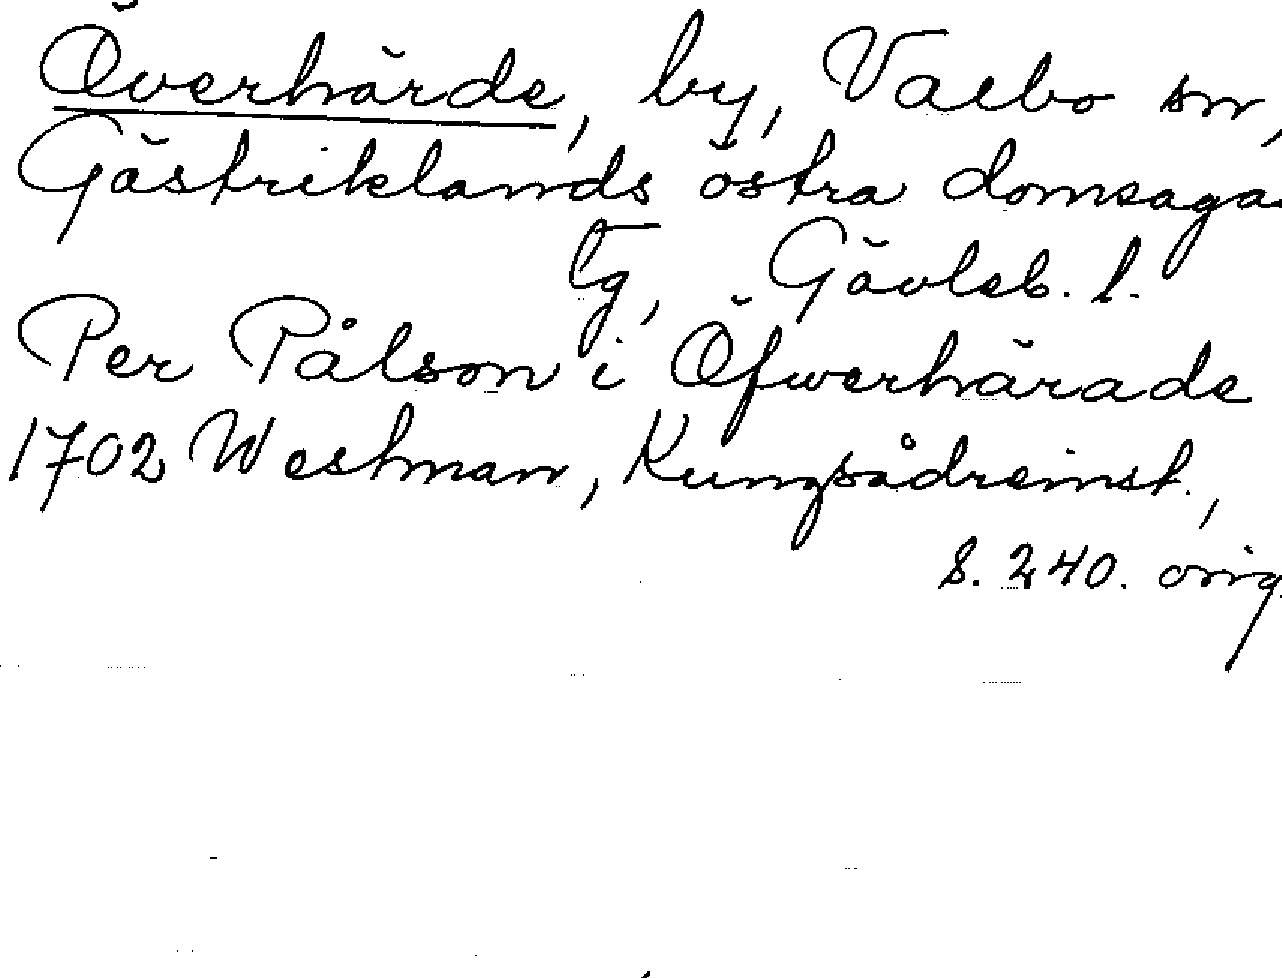 Överhärde, by, Valbo sn,
Gästriklands östra domsagas
tg, Gävleb. l.
Per Pålson i Öfwerhärade
1702 Westman, Kungsådreinst.,
s. 240. orig.